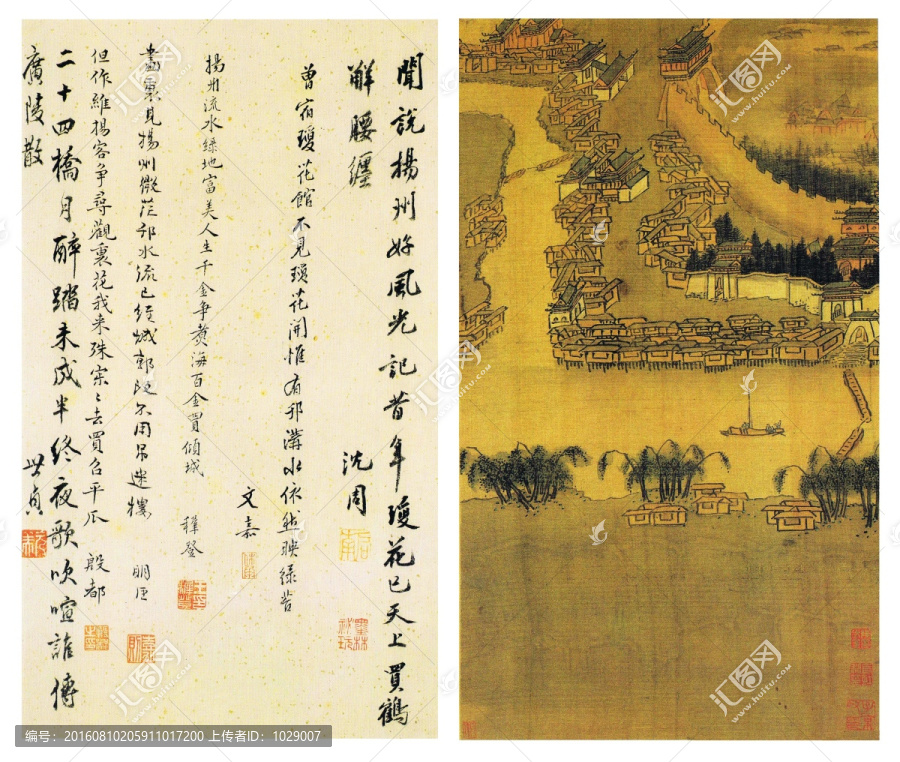 聞說揚州好風光記昔年瓊花已天上買鶴
解腰纏
沈周
曾宿瓊花館不見瓊花開惟有邗溝水依然映綠苔
文嘉
揚州流水繞地富美人生千金爭黃海百金買傾城
穉登
畫裏見揚州微茫邗水流已經城郭改不用吊迷樓
但作維揚客爭尋觀裏花我來殊寂寂去買召平瓜
殷都
二十四橋月醉踏未成半終夜歌吹喧誰傳
廣陵散
世貞
汇图网
www.huitu.com
编号：20160810205911017200 上传者ID：1029007